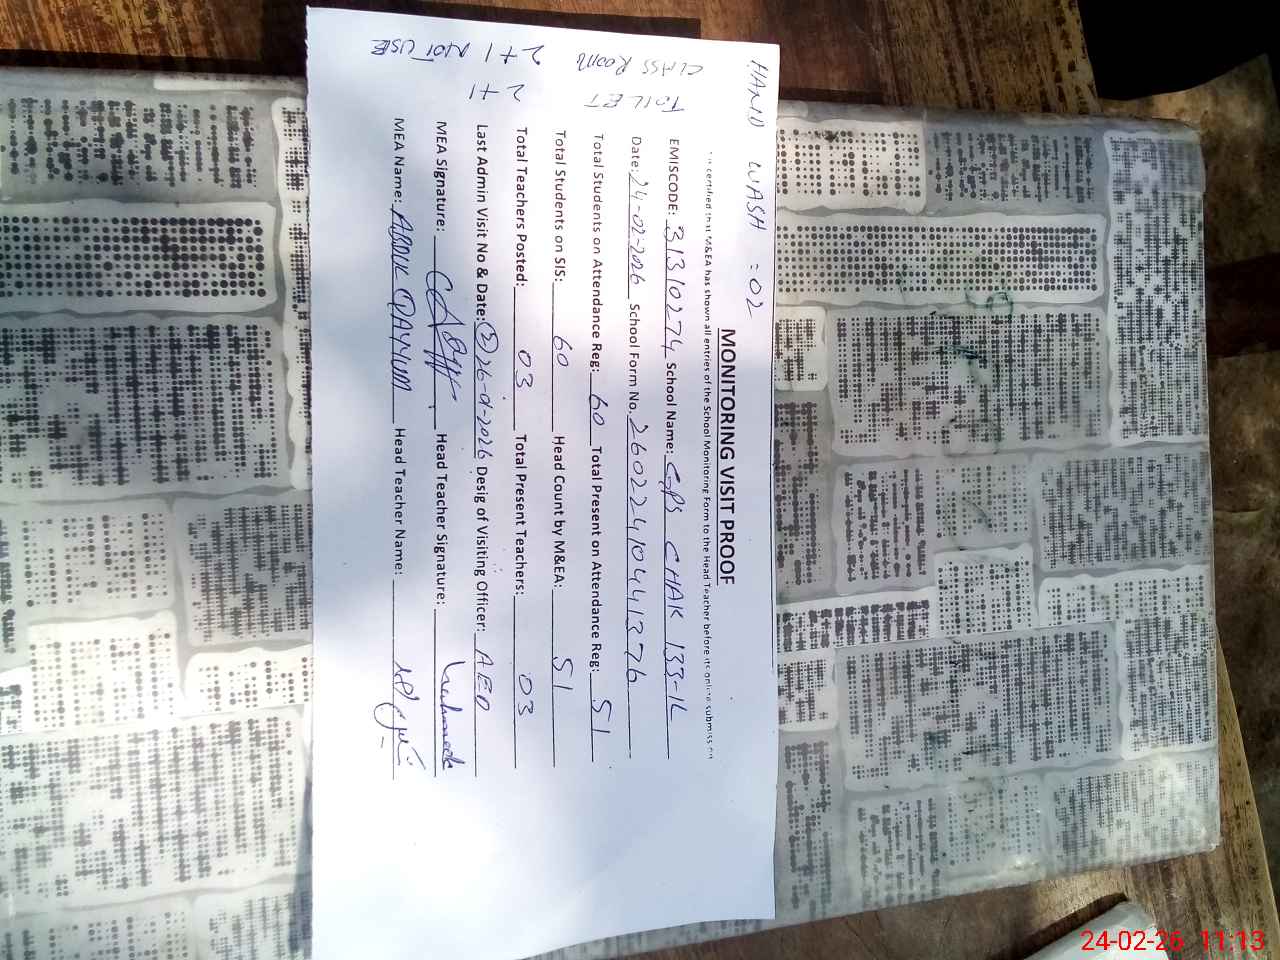 HAND WASH = 02
MONITORING VISIT PROOF
certified that M&EA has shown all entries of the School Monitoring Form to the Head Teacher before its online submission
EMISCODE: 31310274 School Name: GPS CHAK 133-1L
Date: 24-02-2026 School Form No. 260224104413 76
Total Students on Attendance Reg: 60 Total Present on Attendance Reg: 51
Total Students on SIS: 60 Head Count by M&EA: 51
Total Teachers Posted: 03 Total Present Teachers: 03
Last Admin Visit No & Date: (2) 26-01-2026 Desig of Visiting Officer: AEO
MEA Signature: Head Teacher Signature:
MEA Name: ABDUL QAYYUM Head Teacher Name:
TOILET 2+1
CLASS ROOM 2+1 NOT USE
24-02-26 11:13